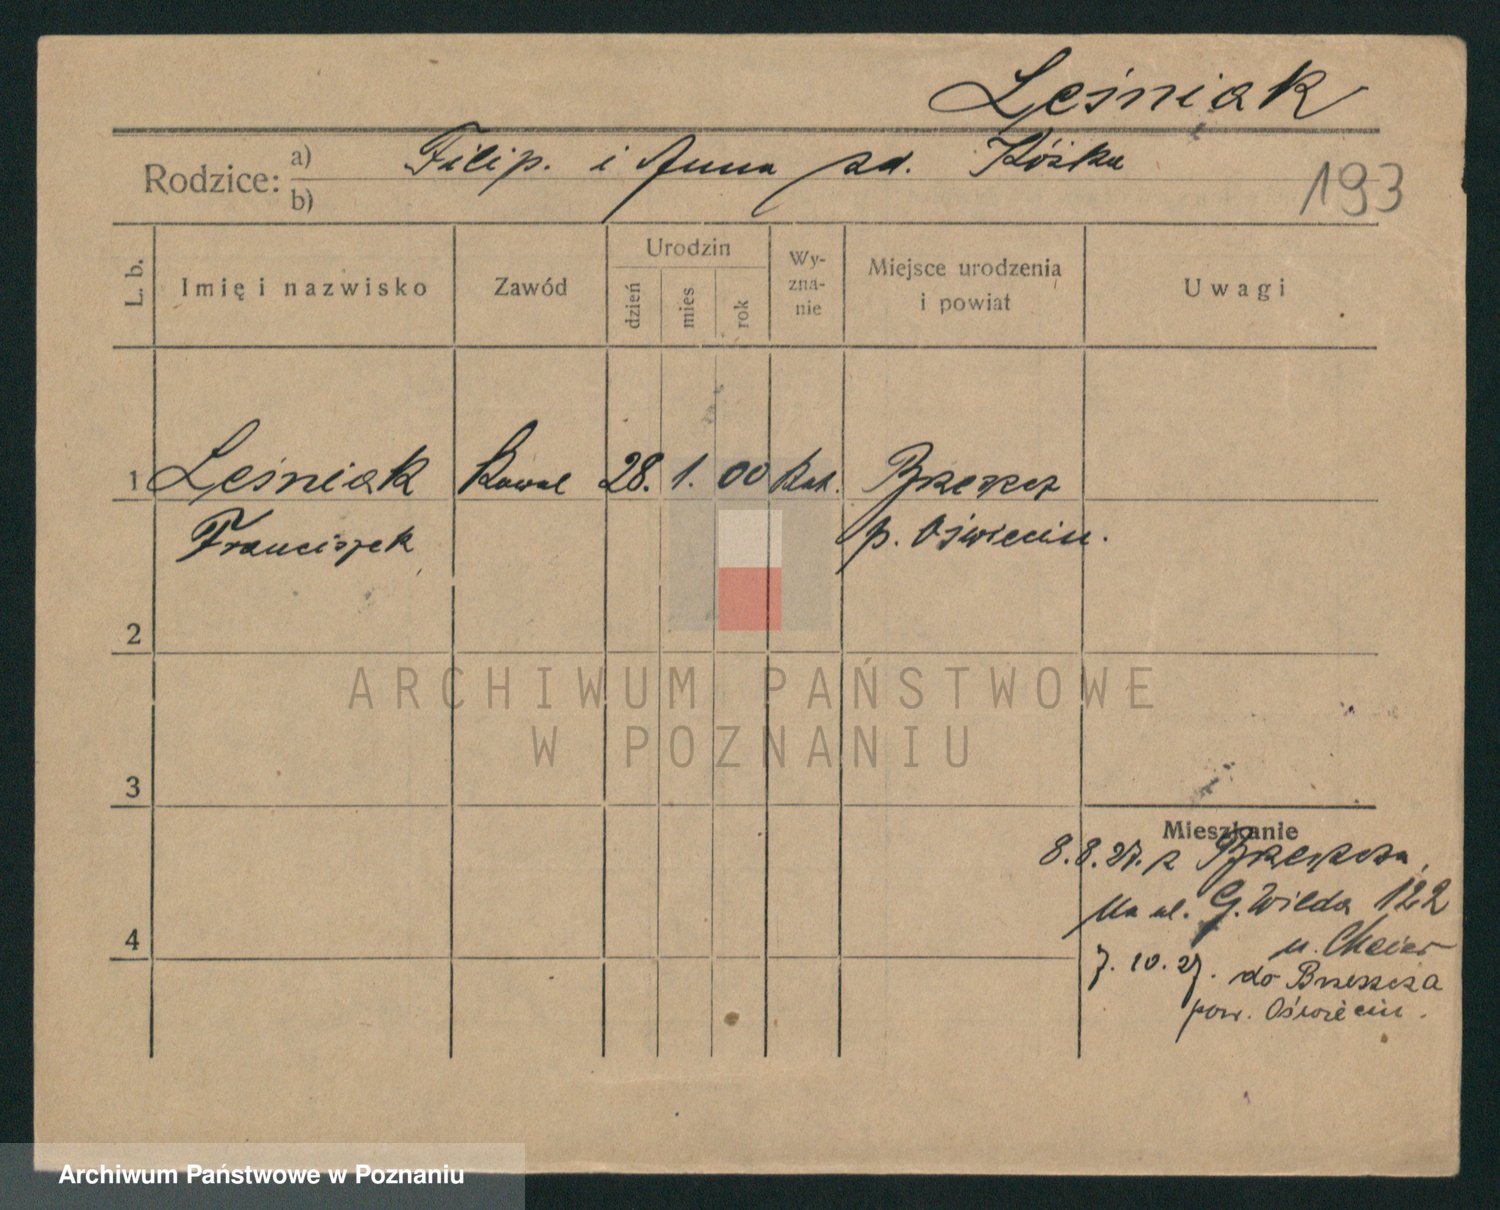 Leśniak
Rodzice: a) Filip. i Anna zd. Kózka
b)
193
L. b.
Imię i nazwisko
Zawód
Urodzin
dzień
mies
rok
Wy-
zna-
nie
Miejsce urodzenia
i powiat
Uwagi
1 Leśniak Kowal 28. 1. 00 Kat. Brzeszcz
Franciszek p. Oświecim.
2
ARCHIWUM PAŃSTWOWE
W POZNANIU
3
Mieszkanie
8.8.27. z Brzeszcza,
Na ul. G. Wilda 122
4
u.
7. 10. 27. do Brzeszcza
pow. Oświecim.
Archiwum Państwowe w Poznaniu